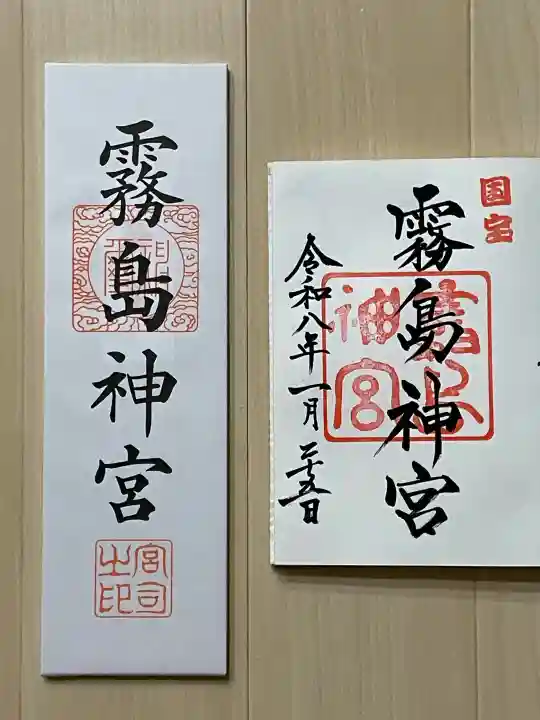 霧島神宮
宮司
之印
国宝
霧島神宮
神宮
令和八年一月二十五日